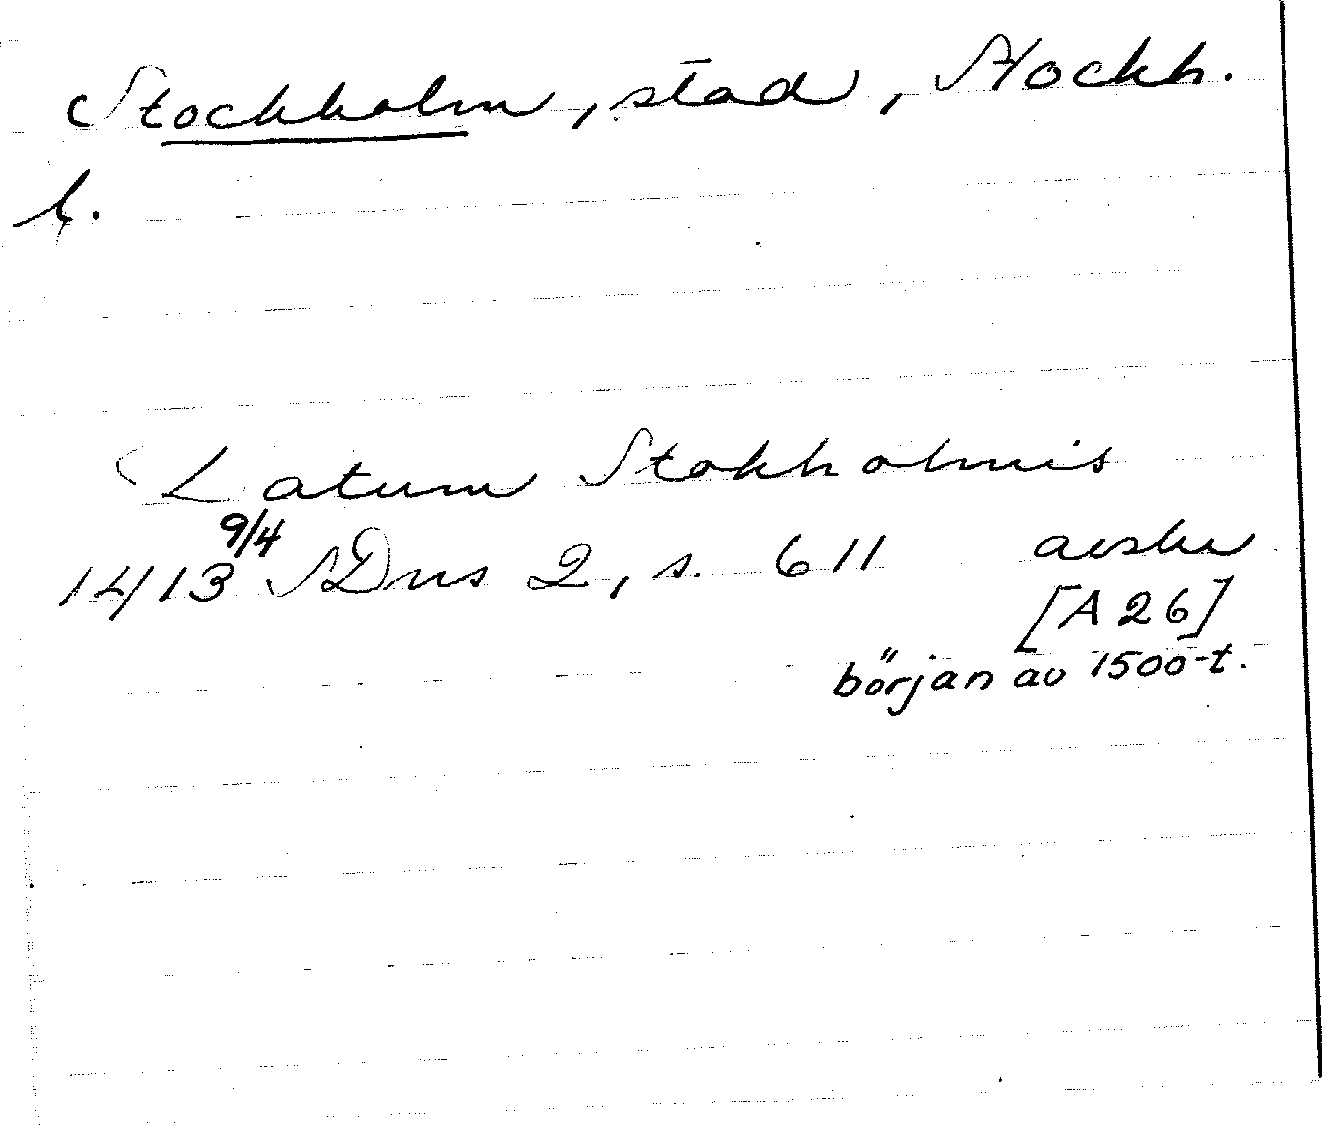 Stockholm, stad, Stockh.
l.
Latum Stokholmis
1413 9/4 SDns 2, s. 611 avskr
[A 26]
början av 1500-t.